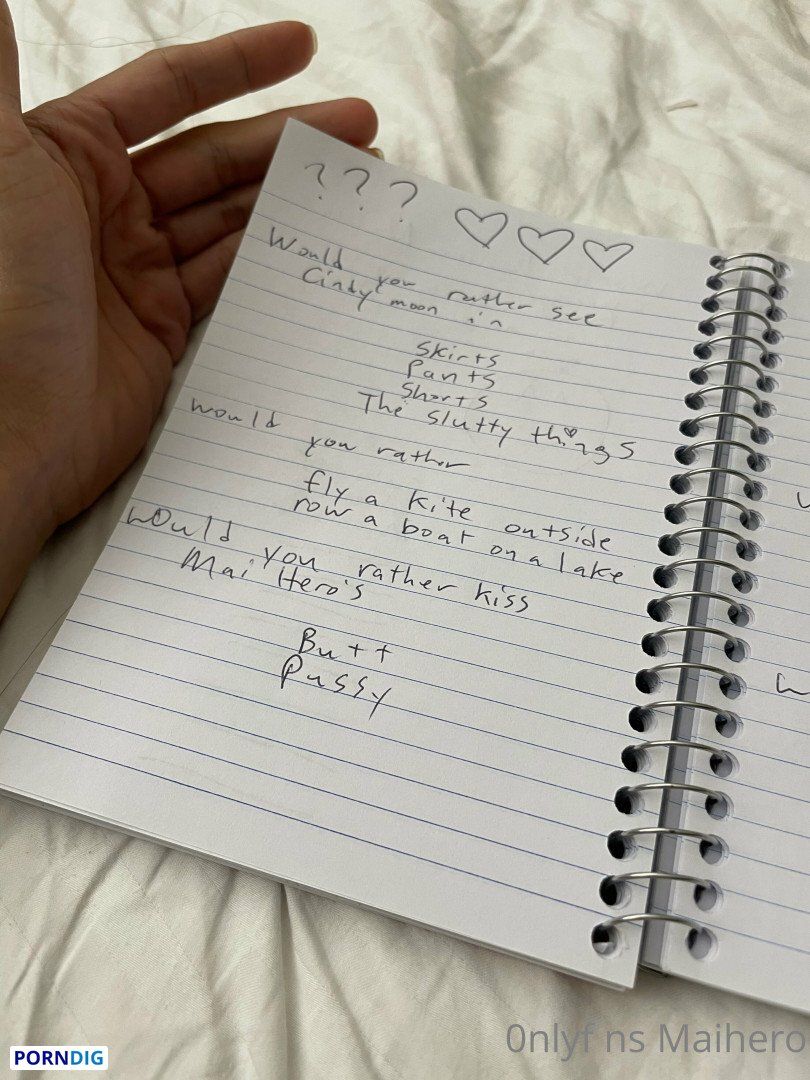 ? ? ? ♡ ♡ ♡
Would you rather see
Cindy moon in
Skirts
Pants
Shorts
The slutty things
would you rather
fly a kite outside
row a boat on a lake
would you rather kiss
Mai Hero's
Butt
Pussy
PORNDIG
0nlyf ns Maihero